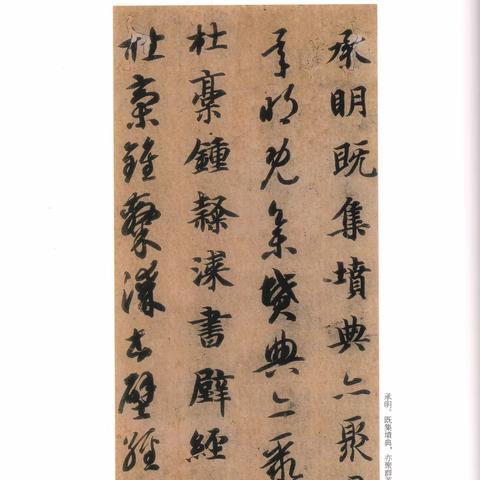 承明既集墳典亦聚
承明既集墳典亦聚
杜稾鍾隸漆書壁經
杜稾鍾隸漆書壁經
承明。既集墳典,亦聚群